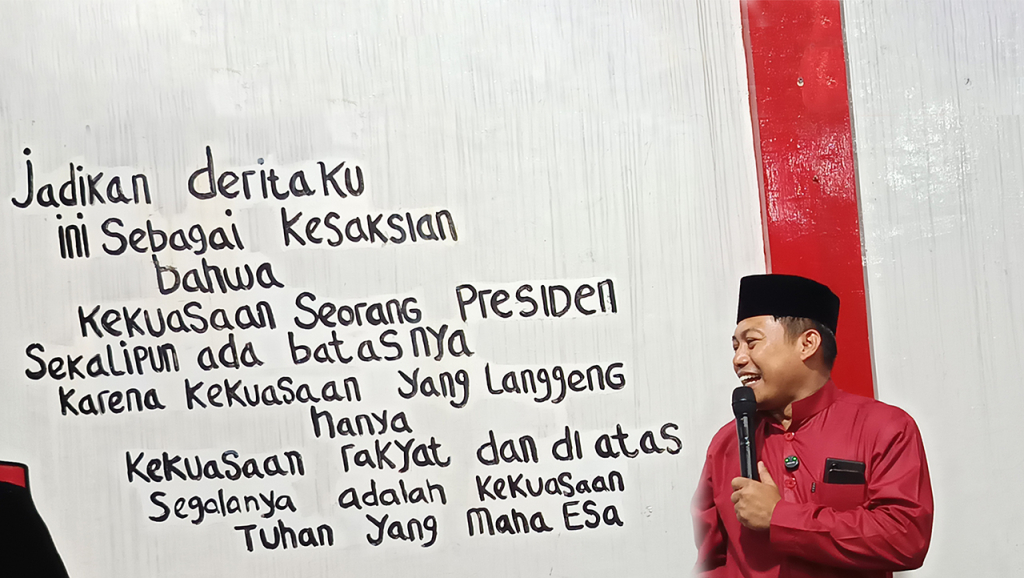 Jadikan deritaku
ini Sebagai kesaksian
bahwa
kekuasaan Seorang Presiden
Sekalipun ada batasnya
karena kekuasaan yang Langgeng
hanya
kekuasaan rakyat dan di atas
Segalanya adalah kekuasaan
Tuhan Yang Maha Esa